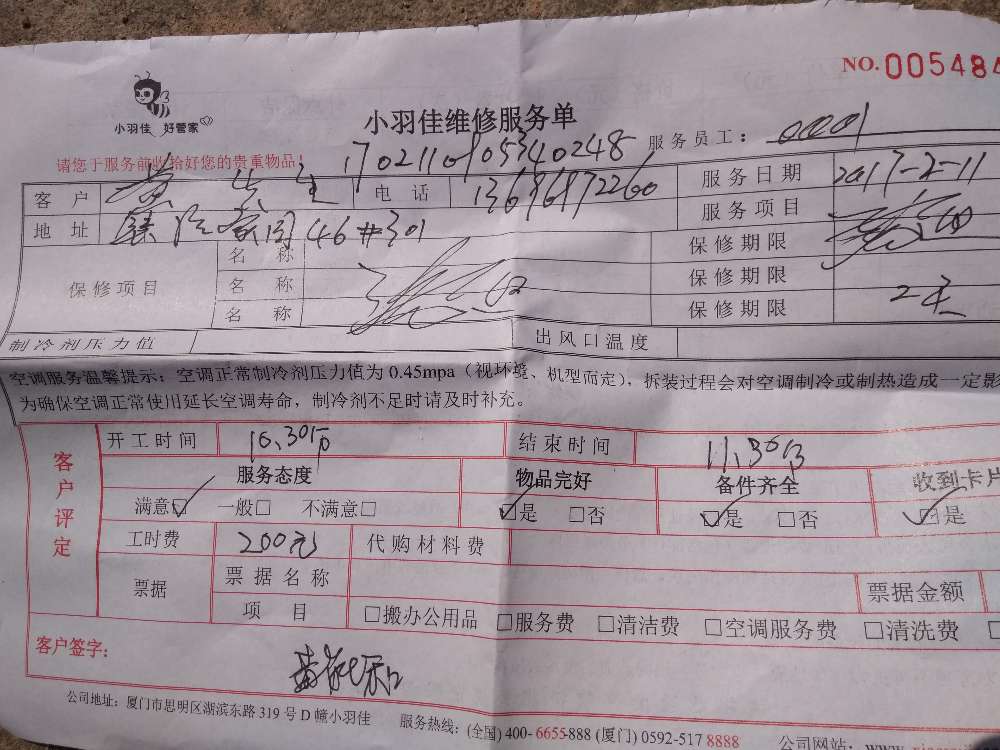 NO.005484
小羽佳 好管家
小羽佳维修服务单
服务员工: 0001
请您于服务前收拾好您的贵重物品!
17021109105340248
客户 黄先生 电话 13696972260 服务日期 2017-2-11
地址 46#301 服务项目
保修项目 名称 保修期限
名称 保修期限
名称 保修期限 2天
制冷剂压力值 出风口温度
空调服务温馨提示:空调正常制冷剂压力值为 0.45mpa(视环境、机型而定),拆装过程会对空调制冷或制热造成一定影
为确保空调正常使用延长空调寿命,制冷剂不足时请及时补充。
客户评定
开工时间 10,30 结束时间 11,30
服务态度 物品完好 备件齐全 收到卡片
满意☑ 一般□ 不满意□ ☑是 □否 ☑是 □否 ☑是
工时费 200元 代购材料费
票据 票据名称 票据金额
项目 □搬办公用品 □服务费 □清洁费 □空调服务费 □清洗费
客户签字:
公司地址:厦门市思明区湖滨东路 319 号 D 幢小羽佳 服务热线:(全国) 400-6655-888 (厦门) 0592-517 8888 公司网站: